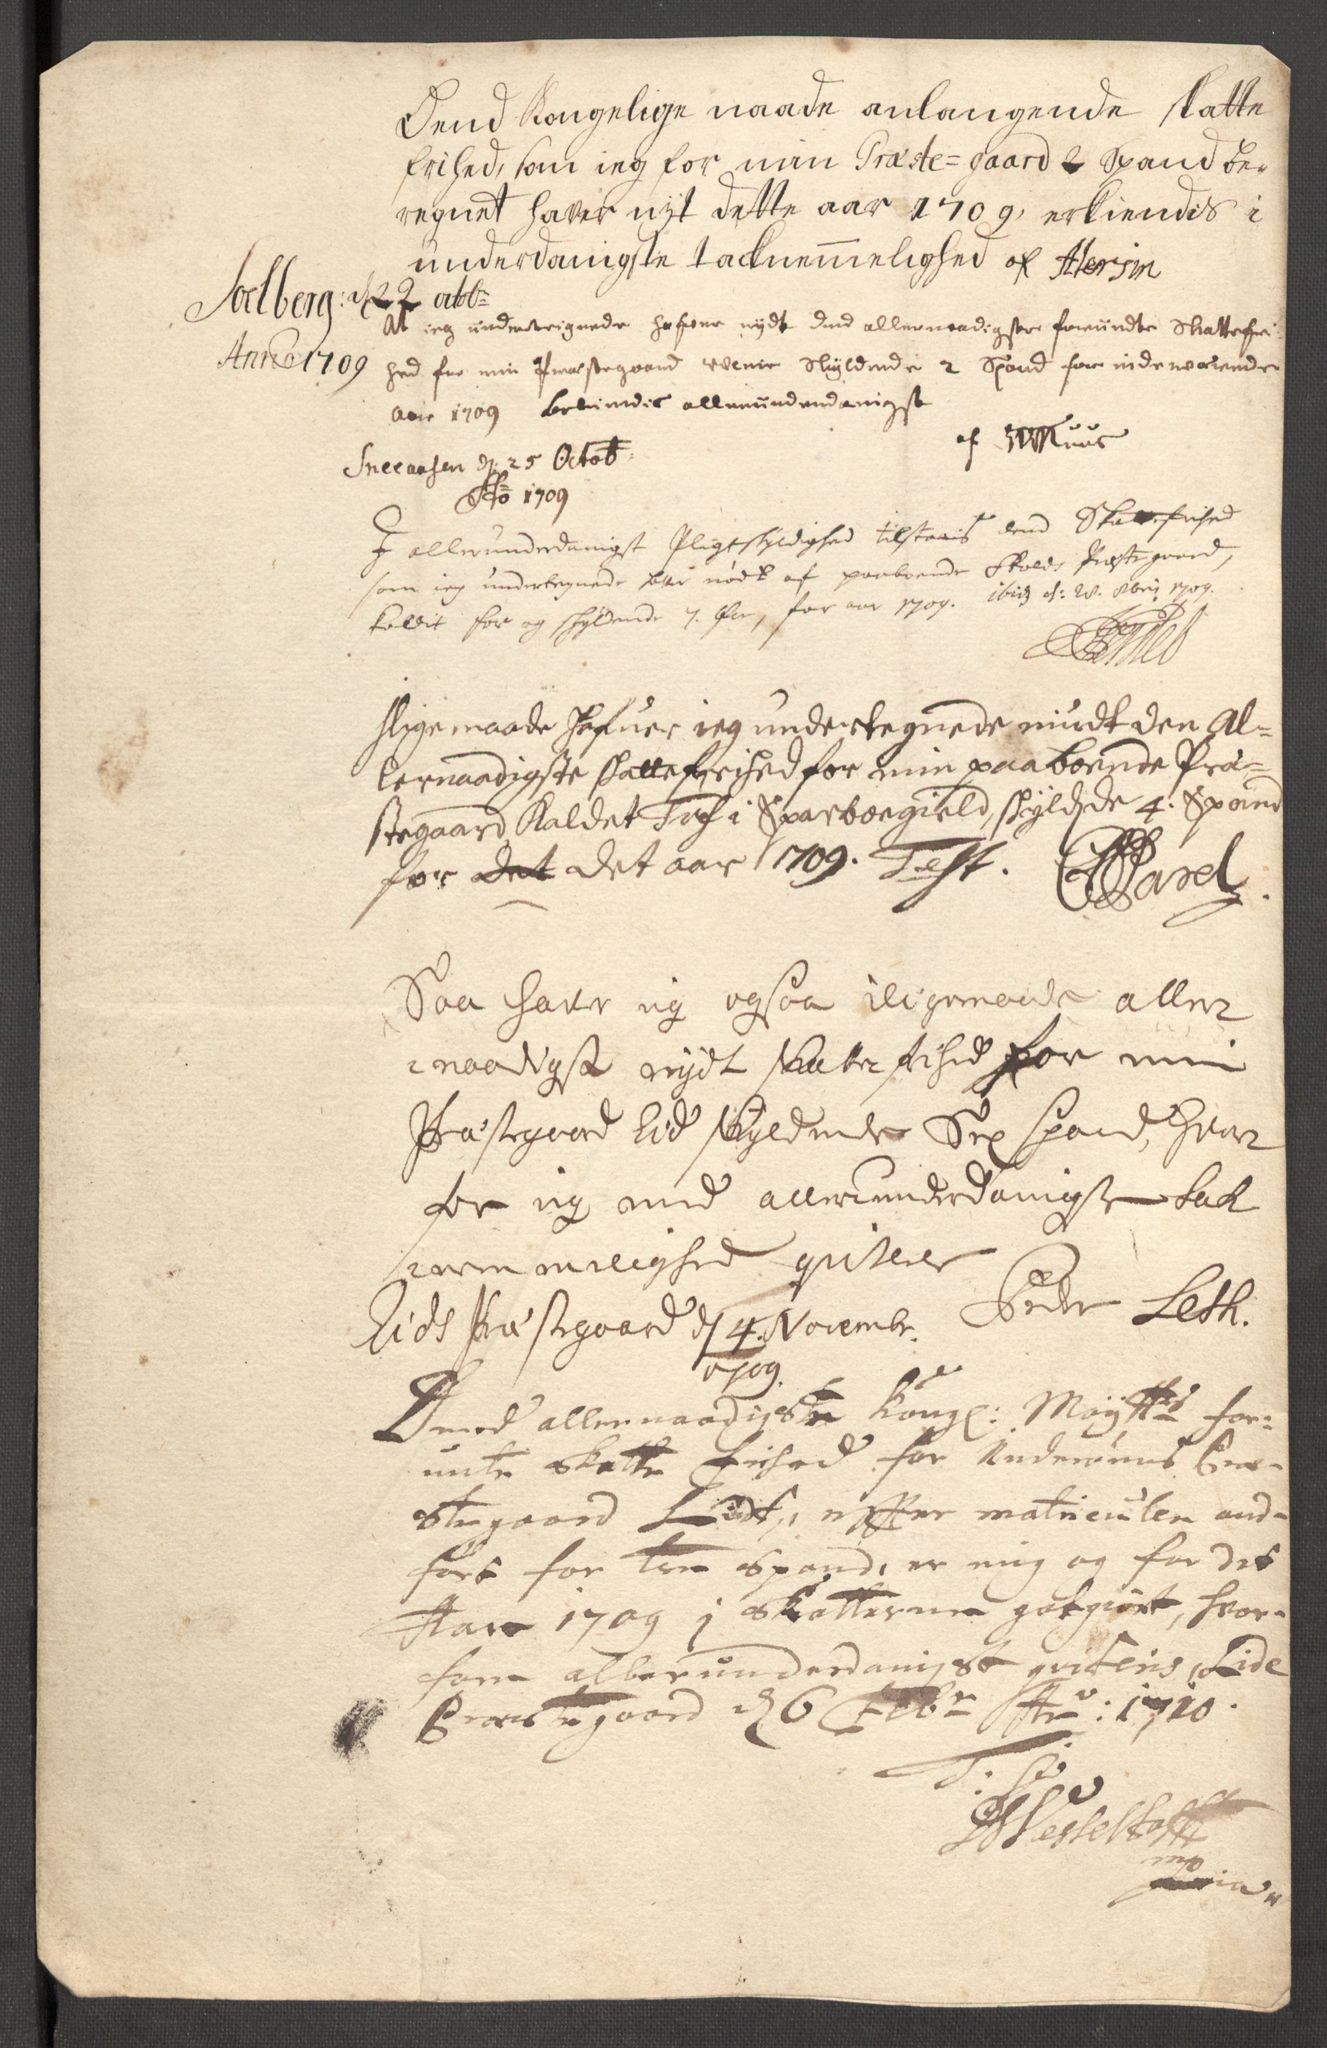 Dend Kongelige naade anlangende skatte
frihed, som ieg for min Præste=gaard 2 Spand be-
regnet haver nyt dette aar 1709, erkiendis i
underdanigste tacknemmelighed af
Soelberg: d 22 octbr
Anno 1709
At ieg undertegnede hafver nydt dend allernaadigste forundte Skattefri-
hed for min Præstegaard skyldende 2 Spand for indeværende
aar 1709 bekiendis allerunderdanigst
af Muus
Sneeaasen d: 25 Octob:
Ao 1709
I allerunderdanigst Pligtskyldighed tilstaais dend Skattefrihed
som ieg undertegnede har nødt af paaboende Præstegaard,
kaldit for og skyldende 7. Øre, for aar 1709. ibid d: 1709.
Lige maade hafuer ieg undertegnede niudt den al-
lernaadigste skattefrihed for min paaboende Præ-
stegaard kaldet i Sparboegield, skyldende 4. Spand
for det det aar 1709. Test. Parel
Saa haver ieg ogsaa i lige maade aller
naadigst nydt skatte frihed for min
Præstegaard Eid skyldende Sex spand, hvor
for ieg med allerunderdanigste tack
nemmelighed qviterer
Eids Præstegaard d 4. Novembr. Peder Leth.
1709.
Dend allernaadigste Kongl: Mayts for-
unte Skatte frihed for Inderøens Præ-
stegaard effter matriculen and-
ført for tre spand, er mig og for det
Aar 1709 i Skatterne gotgiort, hvor-
fore allerunderdanigst qviteris, Lide
Præstegaard d 6 Febr Ao: 1710.
T:
Wesseltofft
mp